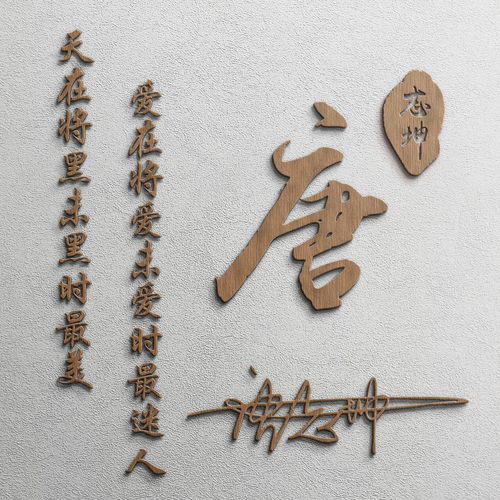 天在将黑未黑时最美
爱在将爱未爱时最迷人
唐
志坤